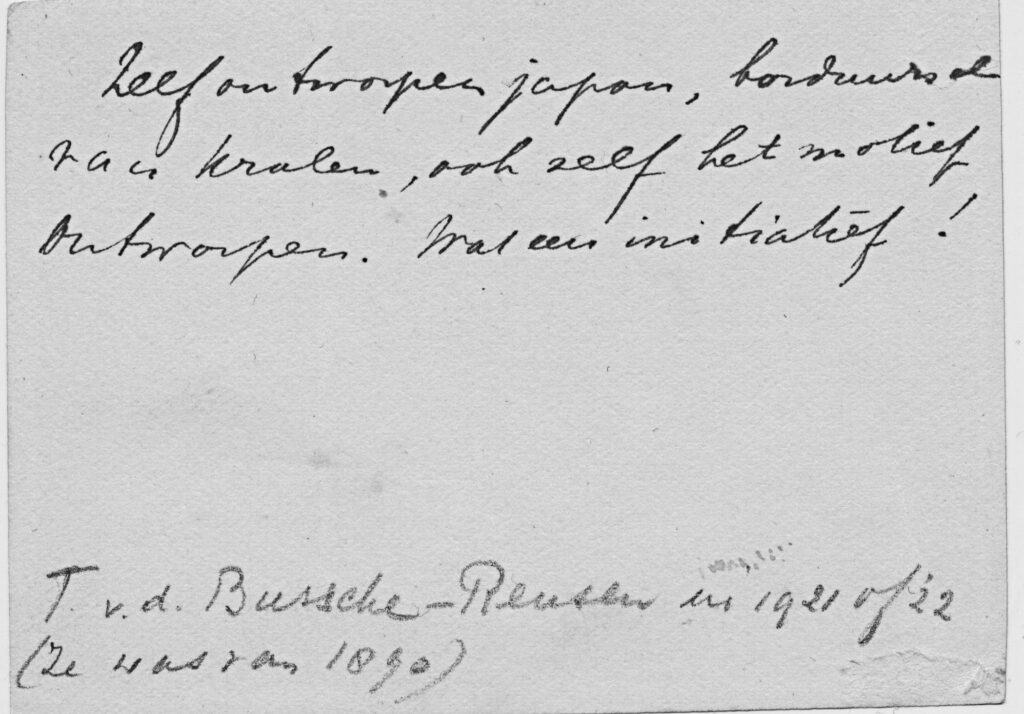 Zelf ontworpen japon, borduursel
van kralen, ook zelf het motief
ontworpen. Wat een initiatief!
T. v. d. Bussche-Reusen in 1921 of '22
(Ze was van 1890)